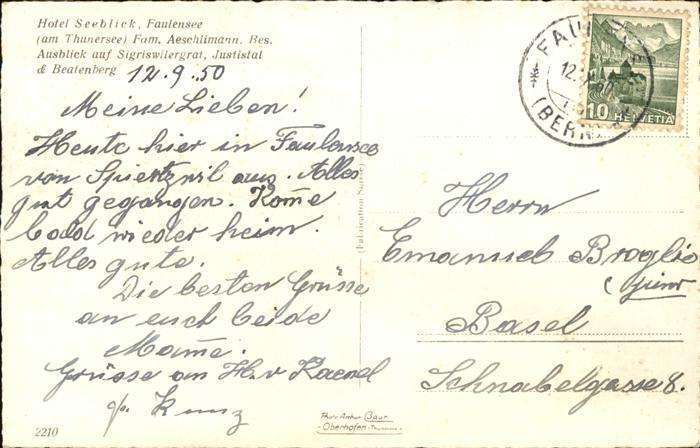 Hotel Seeblick, Faulensee
(am Thunersee) Fam. Aeschlimann, Bes.
Ausblick auf Sigriswilergrat, Justistal
& Beatenberg
12.9.50
Meine Lieben!
Heute hier in Faulensee
von Spiertzwil aus. Alles
gut gegangen. Kom̄e
bald wieder heim.
Alles gute.
Die besten Grüsse
an euch beide
Mam̄e.
Grüsse an H. v Kaenel
2210
FAUL
12.
(BERN)
10 HELVETIA
Herrn
Emanuel Broglie
Basel
Schnabelgasse 8.
Photo Arthur Baur
Oberhofen